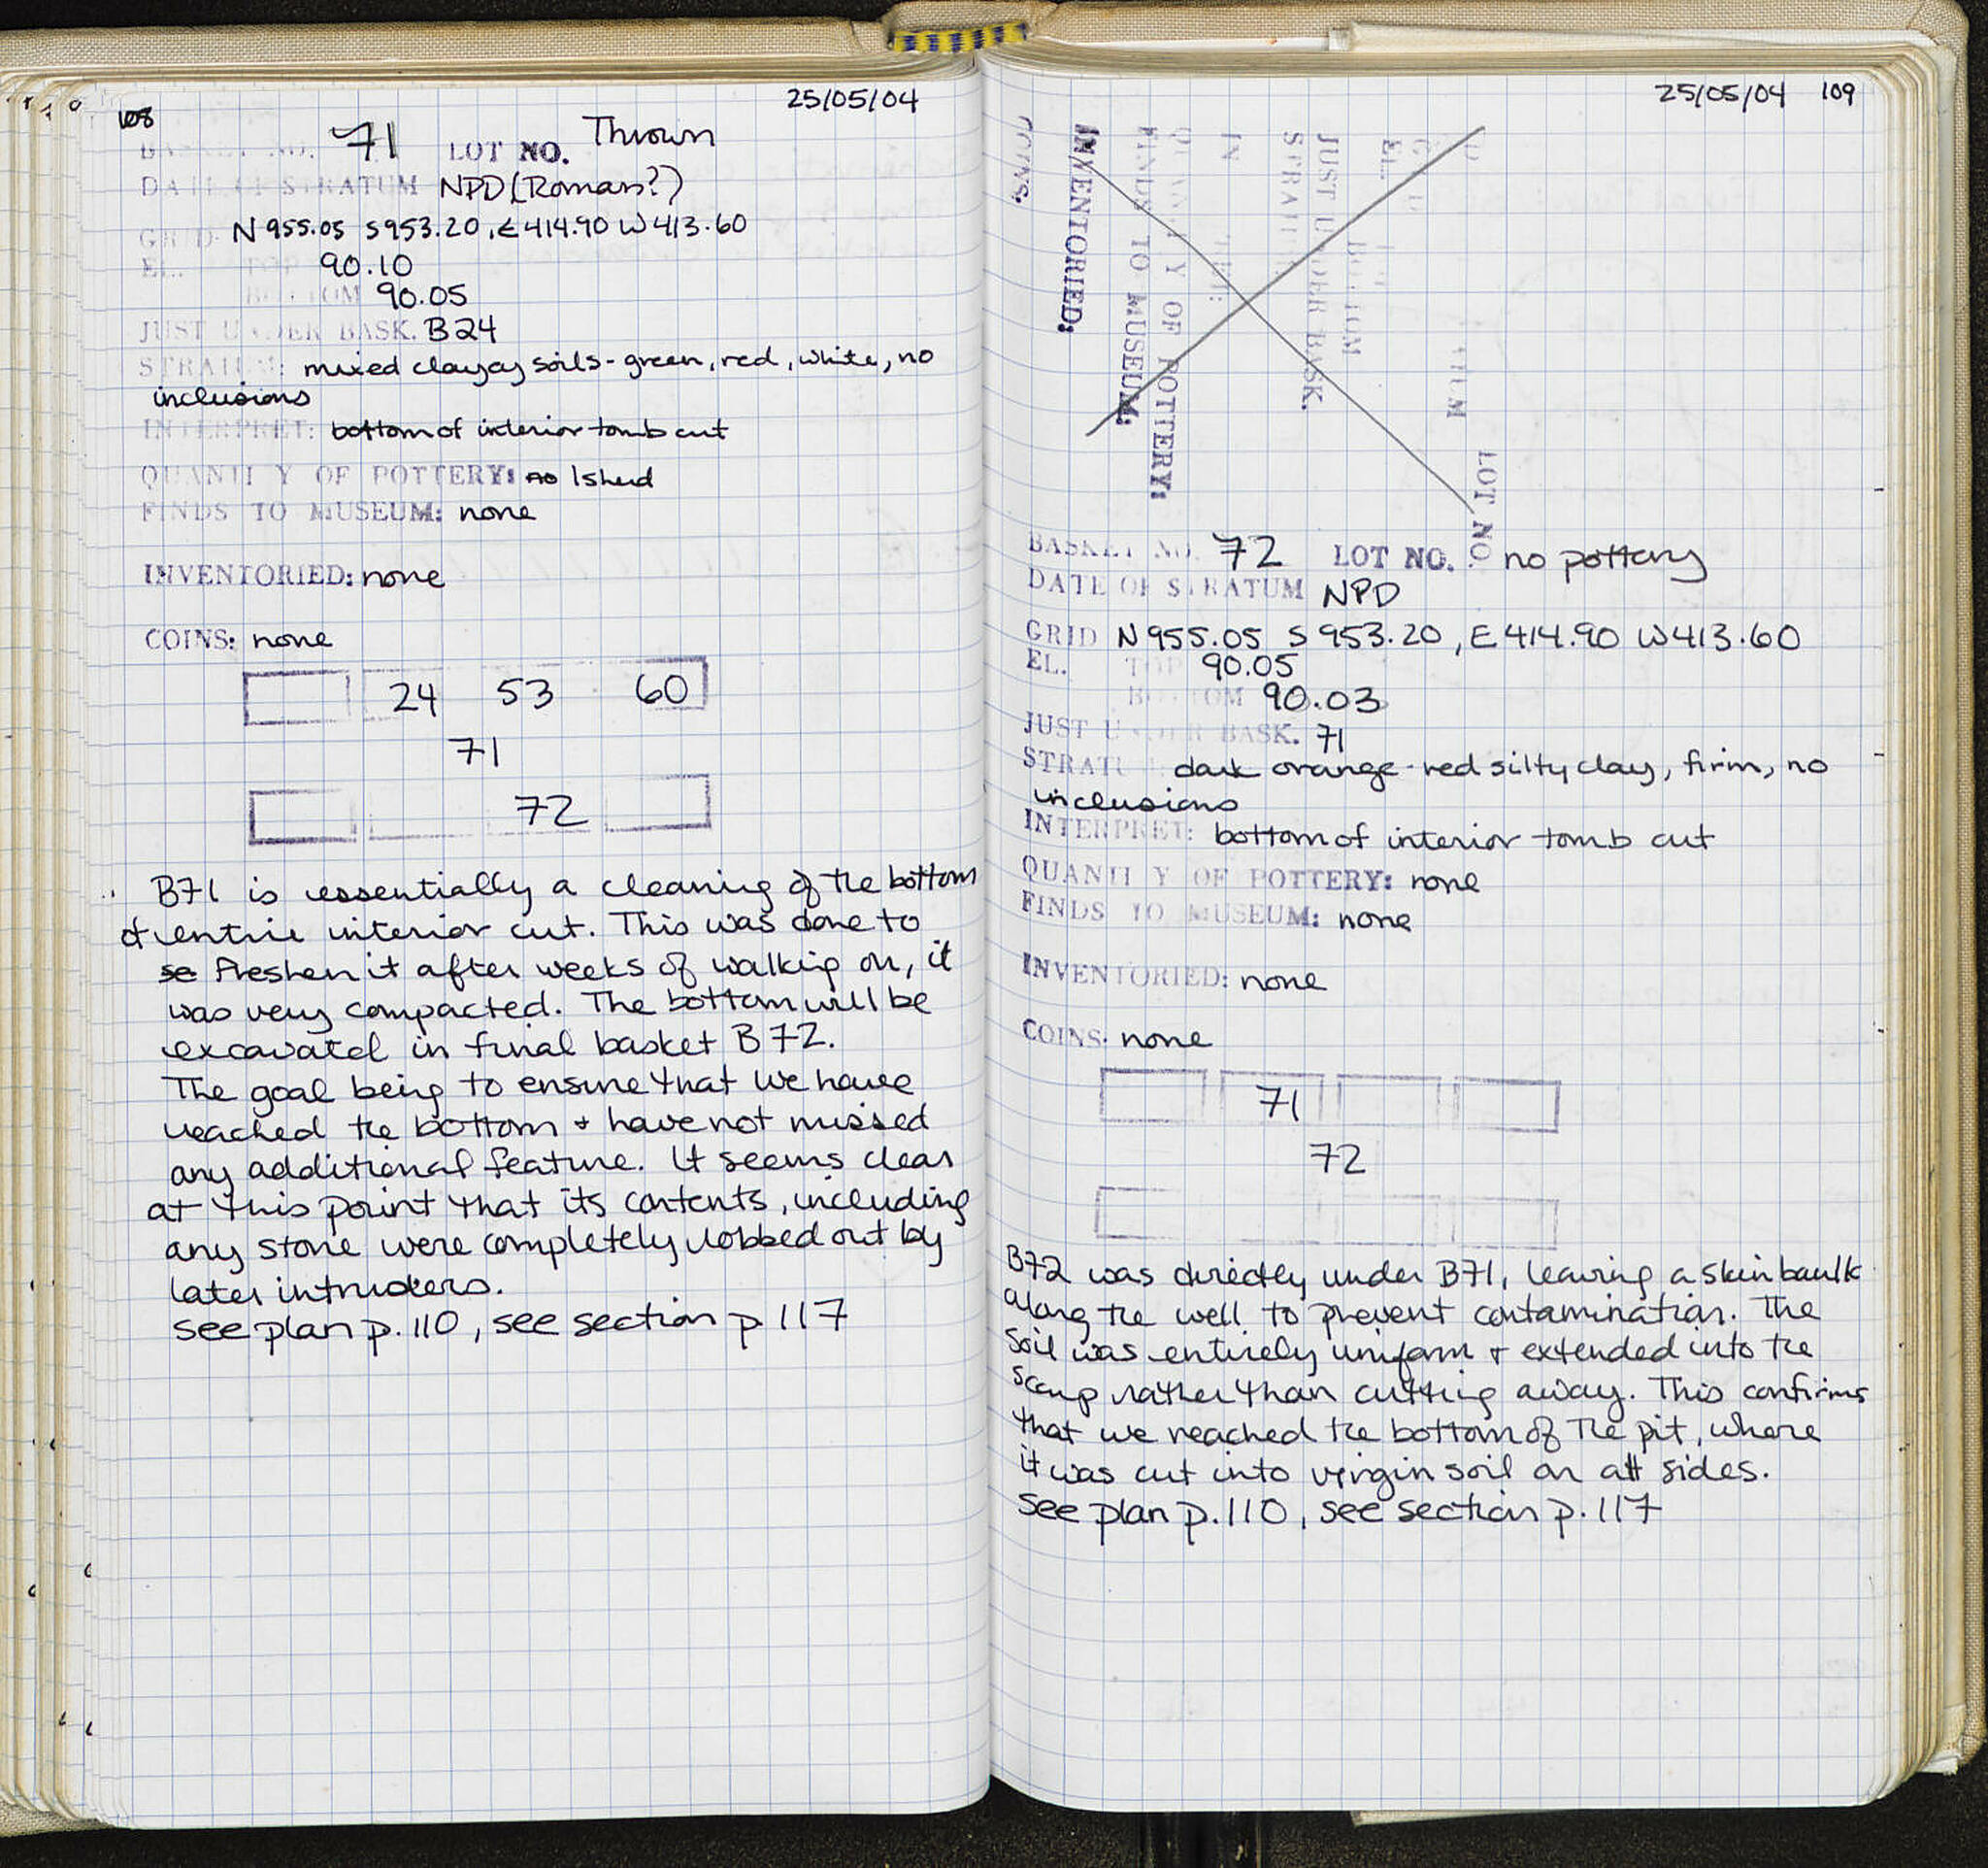 108
25/05/04
BASKET NO. 71 LOT NO. Thrown
DATE OF STRATUM NPD (Roman?)
GRID N955.05 S953.20, E414.90 W413.60
EL. TOP 90.10
BOTTOM 90.05
JUST UNDER BASK. B24
STRATUM: mixed clayey soils - green, red, white, no
inclusions
INTERPRET: bottom of interior tomb cut
QUANTITY OF POTTERY: no 1 sherd
FINDS TO MUSEUM: none
INVENTORIED: none
COINS: none
24 53 60
71
72
B71 is essentially a cleaning of the bottom
of entire interior cut. This was done to
se freshen it after weeks of walking on, it
was very compacted. The bottom will be
excavated in final basket B72.
The goal being to ensure that we have
reached the bottom + have not missed
any additional feature. It seems clear
at this point that its contents, including
any stone were completely robbed out by
later intruders.
see plan p. 110, see section p 117
25/05/04 109
LOT NO.
STRATUM
EL.
BOTTOM
JUST UNDER BASK.
QUANTITY OF POTTERY:
FINDS TO MUSEUM:
INVENTORIED:
COINS:
BASKET NO. 72 LOT NO. no pottery
DATE OF STRATUM NPD
GRID N955.05 S953.20, E414.90 W413.60
EL. TOP 90.05
BOTTOM 90.03
JUST UNDER BASK. 71
STRATU dark orange-red silty clay, firm, no
inclusions
INTERPRET: bottom of interior tomb cut
QUANTITY OF POTTERY: none
FINDS TO MUSEUM: none
INVENTORIED: none
COINS: none
71
72
B72 was directly under B71, leaving a skin baulk
along the well to prevent contamination. The
soil was entirely uniform + extended into the
scarp rather than cutting away. This confirms
that we reached the bottom of the pit, where
it was cut into virgin soil on all sides.
see plan p. 110, see section p. 117